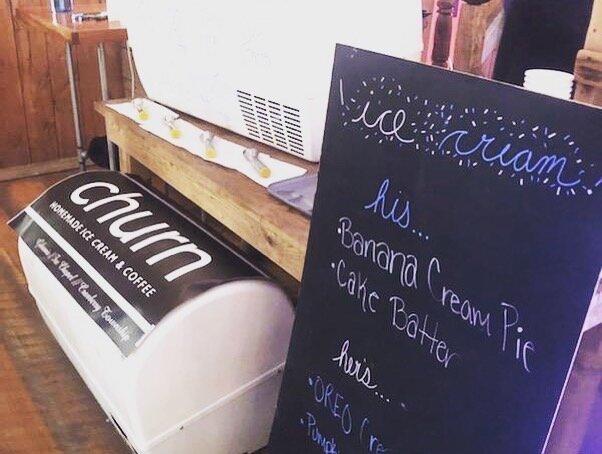 churn
HOMEMADE ICE CREAM & COFFEE
& Cranberry Township
ice cream
his...
•Banana Cream Pie
•Cake Batter
hers...
•OREO Cre
•Pumpk